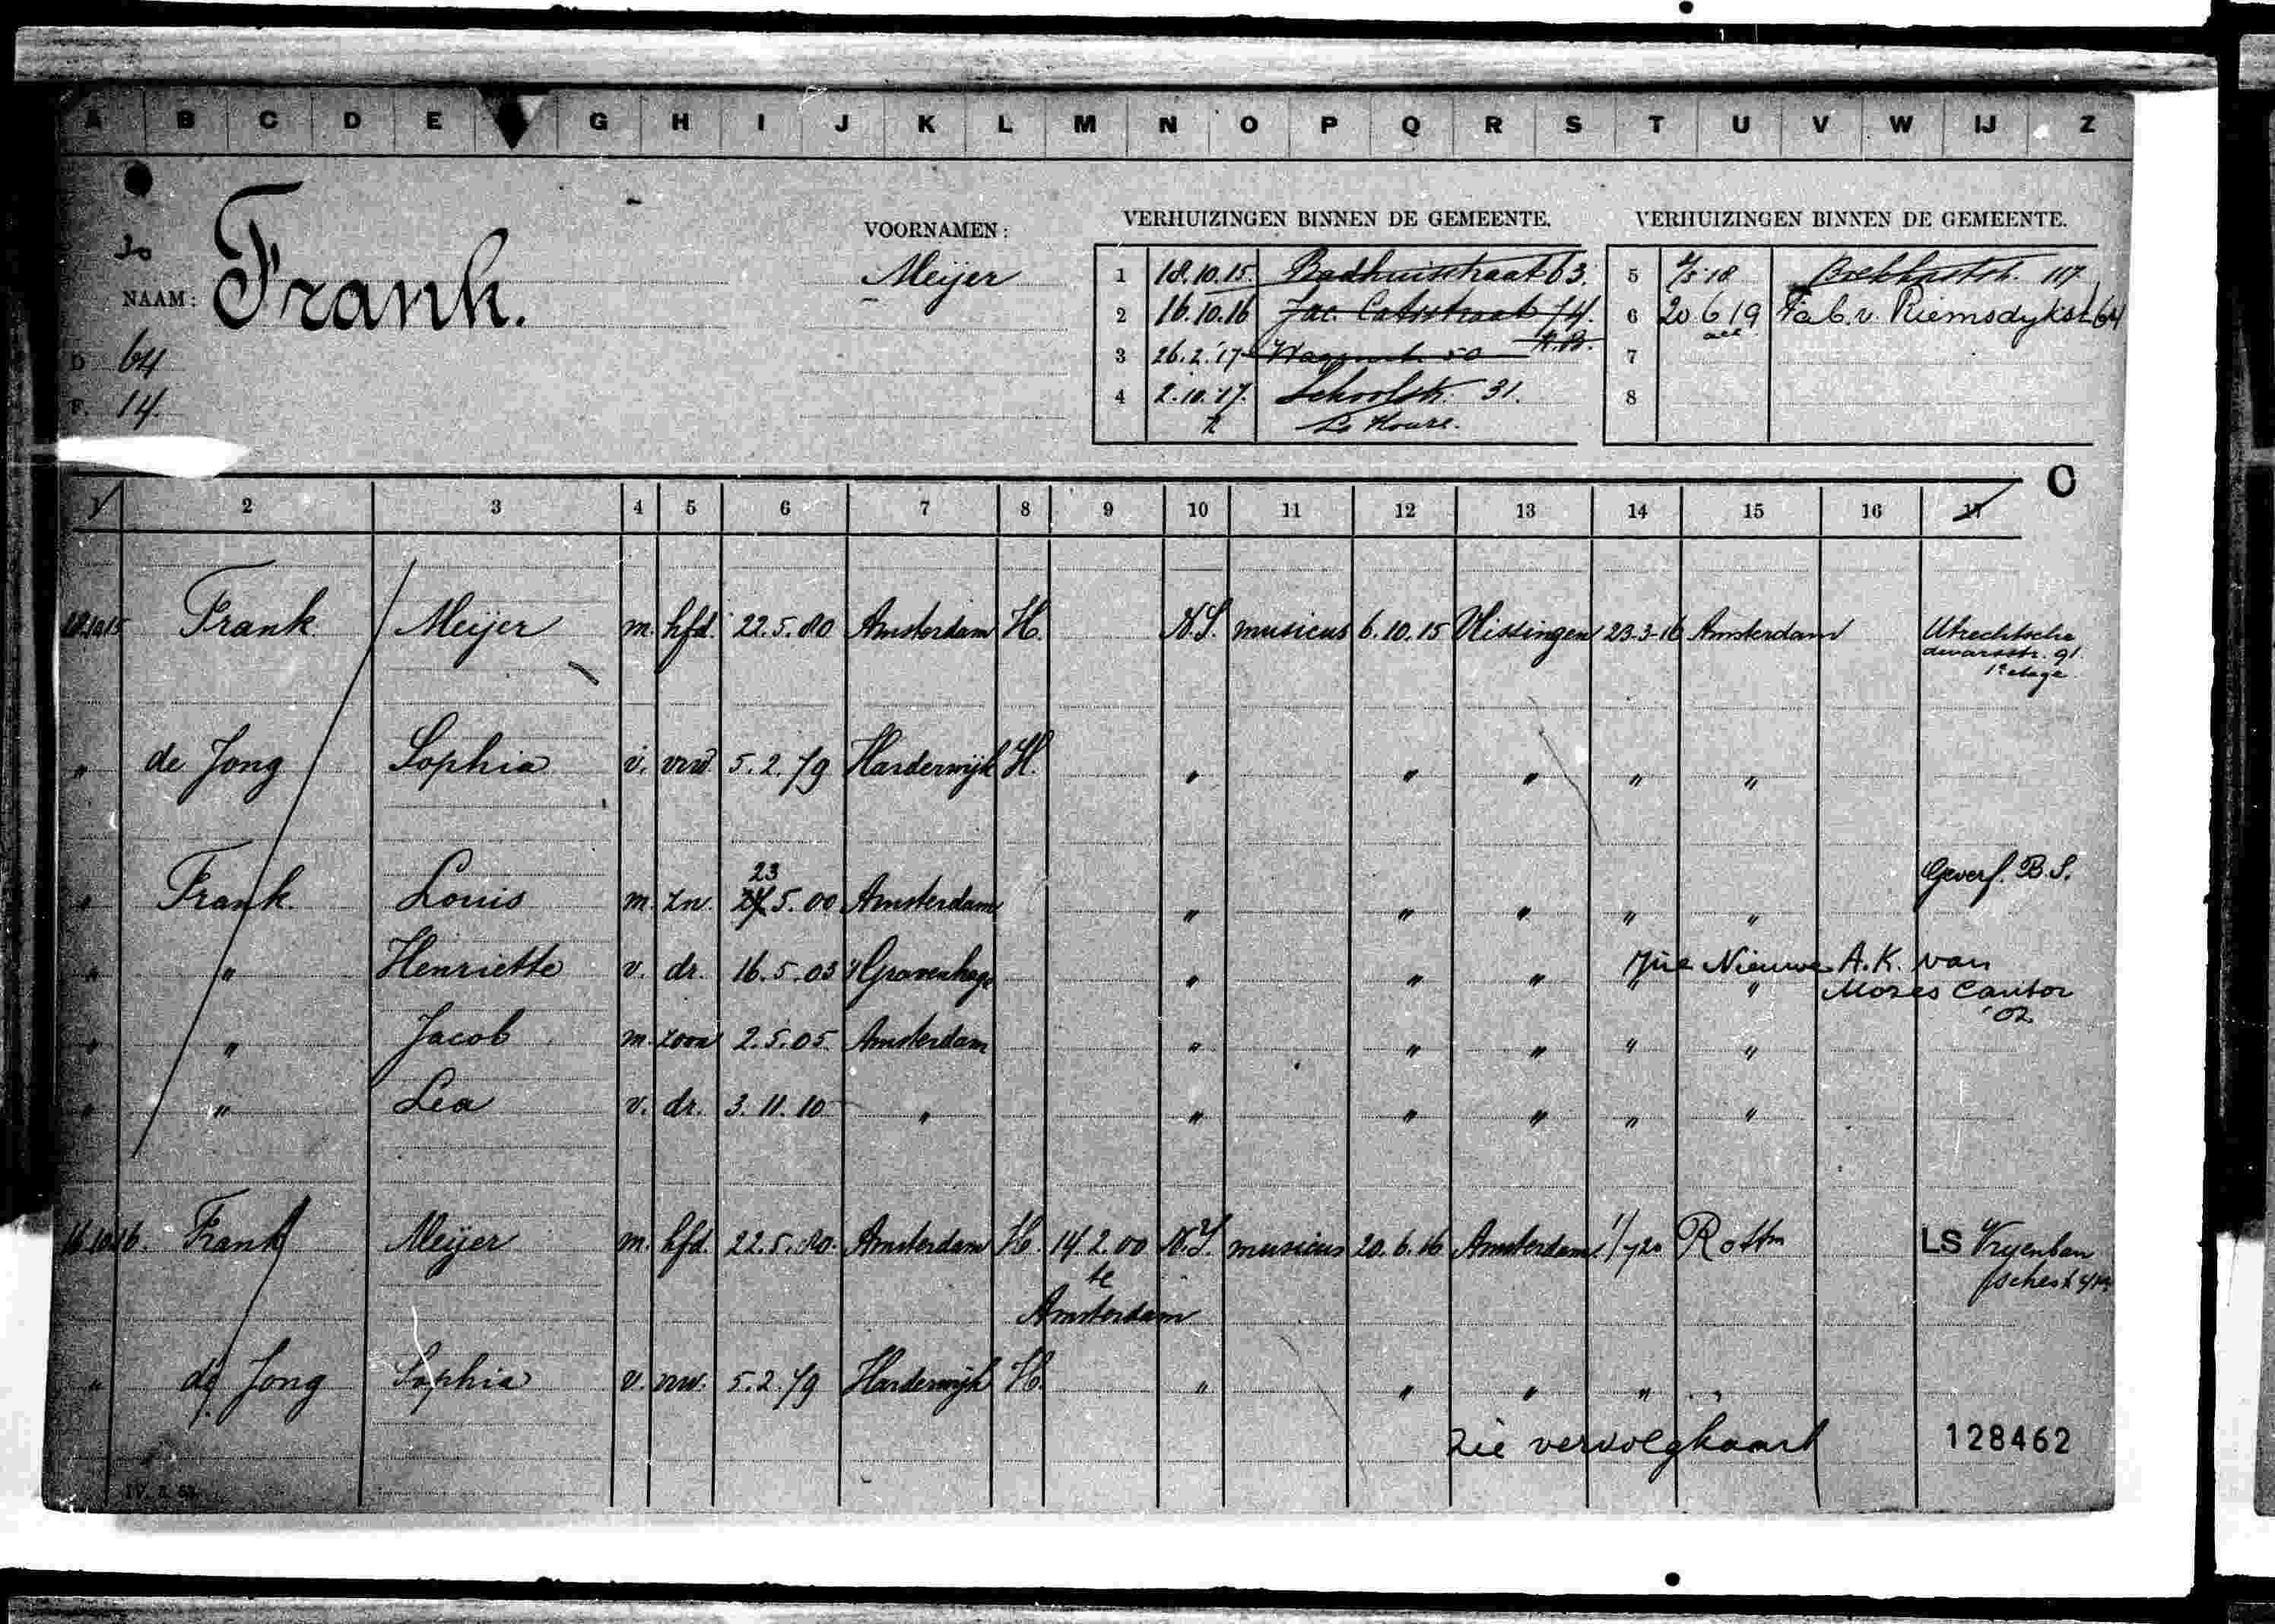 A B C D E G H I J K L M N O P Q R S T U V W IJ Z
NAAM: Frank.
VOORNAMEN:
Meijer
64
14.
VERHUIZINGEN BINNEN DE GEMEENTE.
1 18.10.15 Badhuisstraat 63.
2 16.10.16 Jac. Catsstraat 74.
3 26.2.'17 Wagenstr. 50
4 2.10.17. Schoolstr. 31.
VERHUIZINGEN BINNEN DE GEMEENTE.
5 4/5 18 117
6 20 6 19 Fa b. v. Riemsdykst 64
7
8
O
1 2 3 4 5 6 7 8 9 10 11 12 13 14 15 16 17
18.10.15 Frank Meijer m. hfd. 22.5.80 Amsterdam H. N.I. musicus 6.10.15 Vlissingen 23-3-16 Amsterdam Utrechtsche
dwarsstr. 91.
1e etage
" de Jong Sophia v. vrw. 5.2.79 Harderwijk H. " " " " "
Geverf. B.S.
23
" Frank Louis m. zn. 24 5.00 Amsterdam " " " " "
" " Henriette v. dr. 16.5.03 's Gravenhage " " " " "
Nieuwe A.K. van
Mozes Cantor
'02
" " Jacob m. zoon 2.5.05. Amsterdam " " " " "
" " Lea v. dr. 3.11.10 " " " " " "
16.10.16. Frank Meijer m. hfd. 22.5.80. Amsterdam H. 14.2.00 N.I. musicus 20.6.16 Amsterdam 1/7 20 Rottm LS Vryenban
schest
te
Amsterdam
" de Jong Sophia v. vrw. 5.2.79 Harderwijk H. " " " " "
zie vervolgkaart
128462